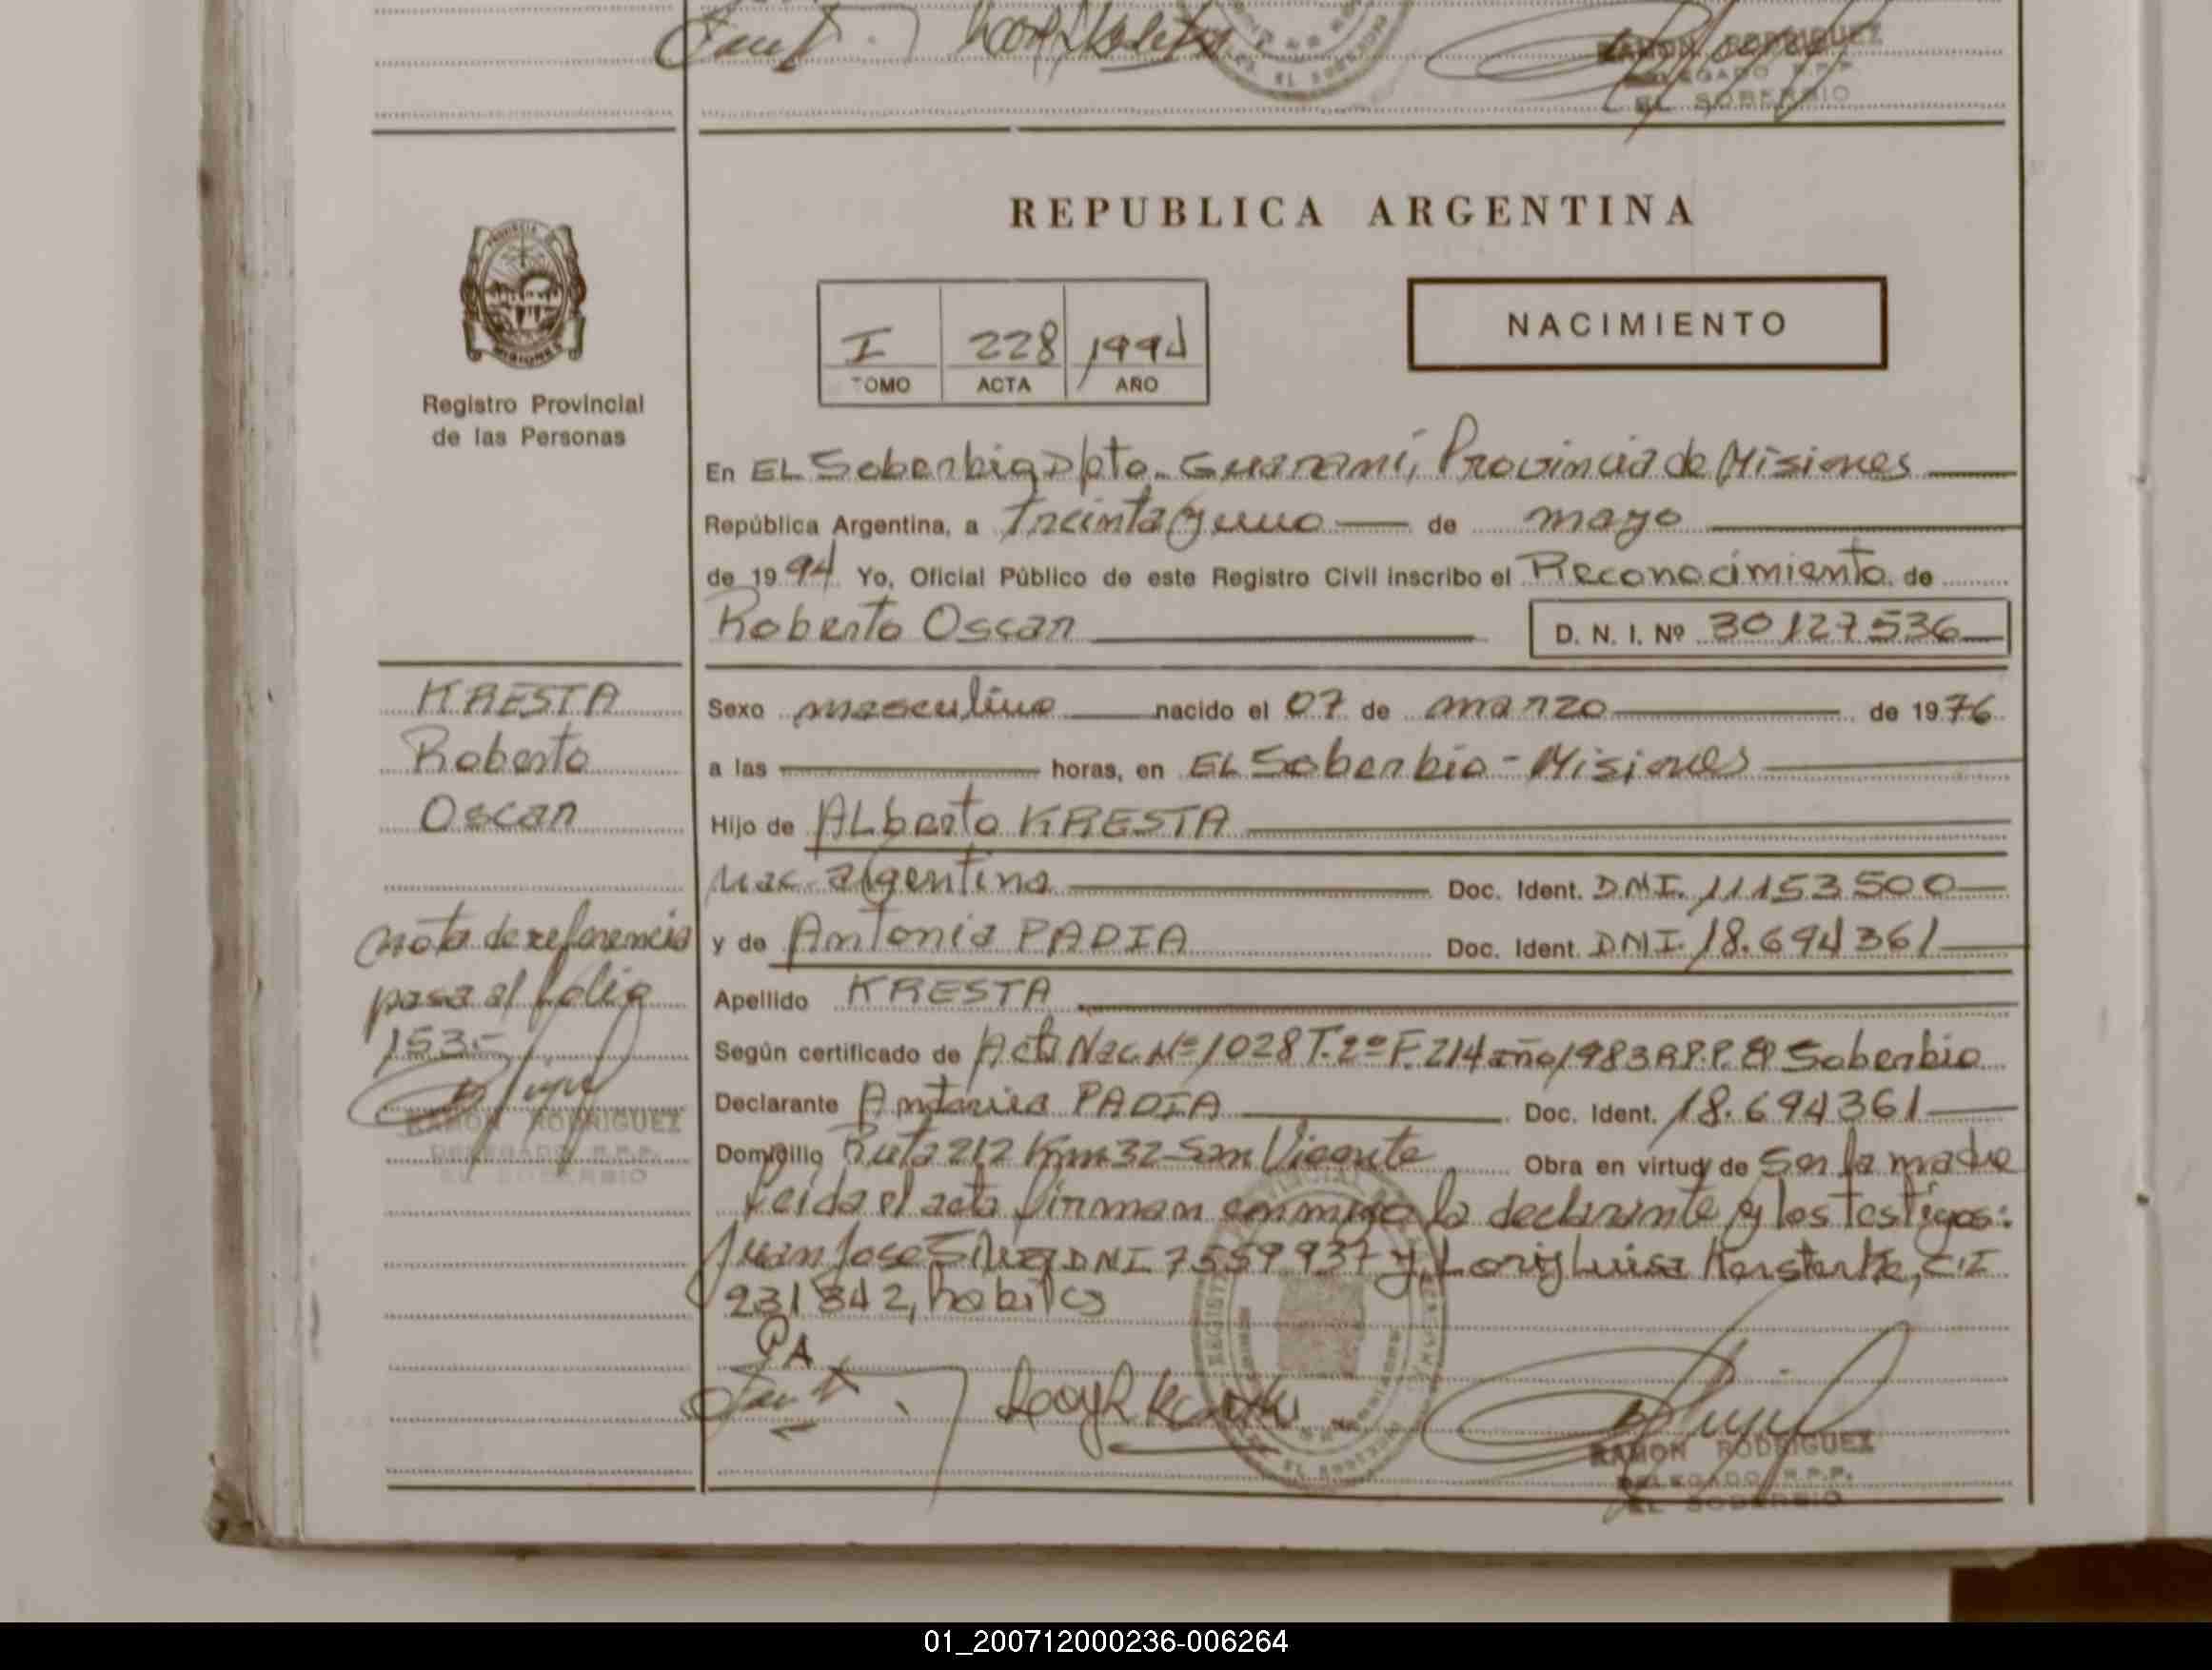 RAMON RODRIGUEZ
DELEGADO R.P.P.
EL SOBERBIO
REPUBLICA ARGENTINA
PROVINCIA DE
MISIONES
Registro Provincial
de las Personas
I 228 1994
TOMO ACTA AÑO
NACIMIENTO
En EL Soberbio Dpto. Guaraní, Provincia de Misiones
República Argentina, a Treinta y uno de mayo
de 1994 Yo, Oficial Público de este Registro Civil inscribo el Reconocimiento de
Roberto Oscar D. N. I. Nº 30127536
KRESTA
Roberto
Oscar
nota de referencia
pasa al folio
153.-
RAMON RODRIGUEZ
DELEGADO R.P.P.
EL SOBERBIO
Sexo masculino nacido el 07 de marzo de 1976
a las horas, en EL Soberbio - Misiones
Hijo de ALberto KRESTA
Nac. argentina Doc. Ident. DNI. 11153500
y de Antonia PADIA Doc. Ident. DNI. 18.694361
Apellido KRESTA
Según certificado de Acta Nac. Nº 1028 T. 2º F. 214 año 1983 R.P.P. El Soberbio
Declarante Antonia PADIA Doc. Ident. 18.694361
Domicilio Ruta 212 Km 32 - San Vicente Obra en virtud de Ser la madre
Leida el acta firman conmigo la declarante y los testigos:
Juan Jose DNI 7559937 y Luisa C.I
231842, habiles
PA
RAMON RODRIGUEZ
DELEGADO R.P.P.
EL SOBERBIO
01_200712000236-006264